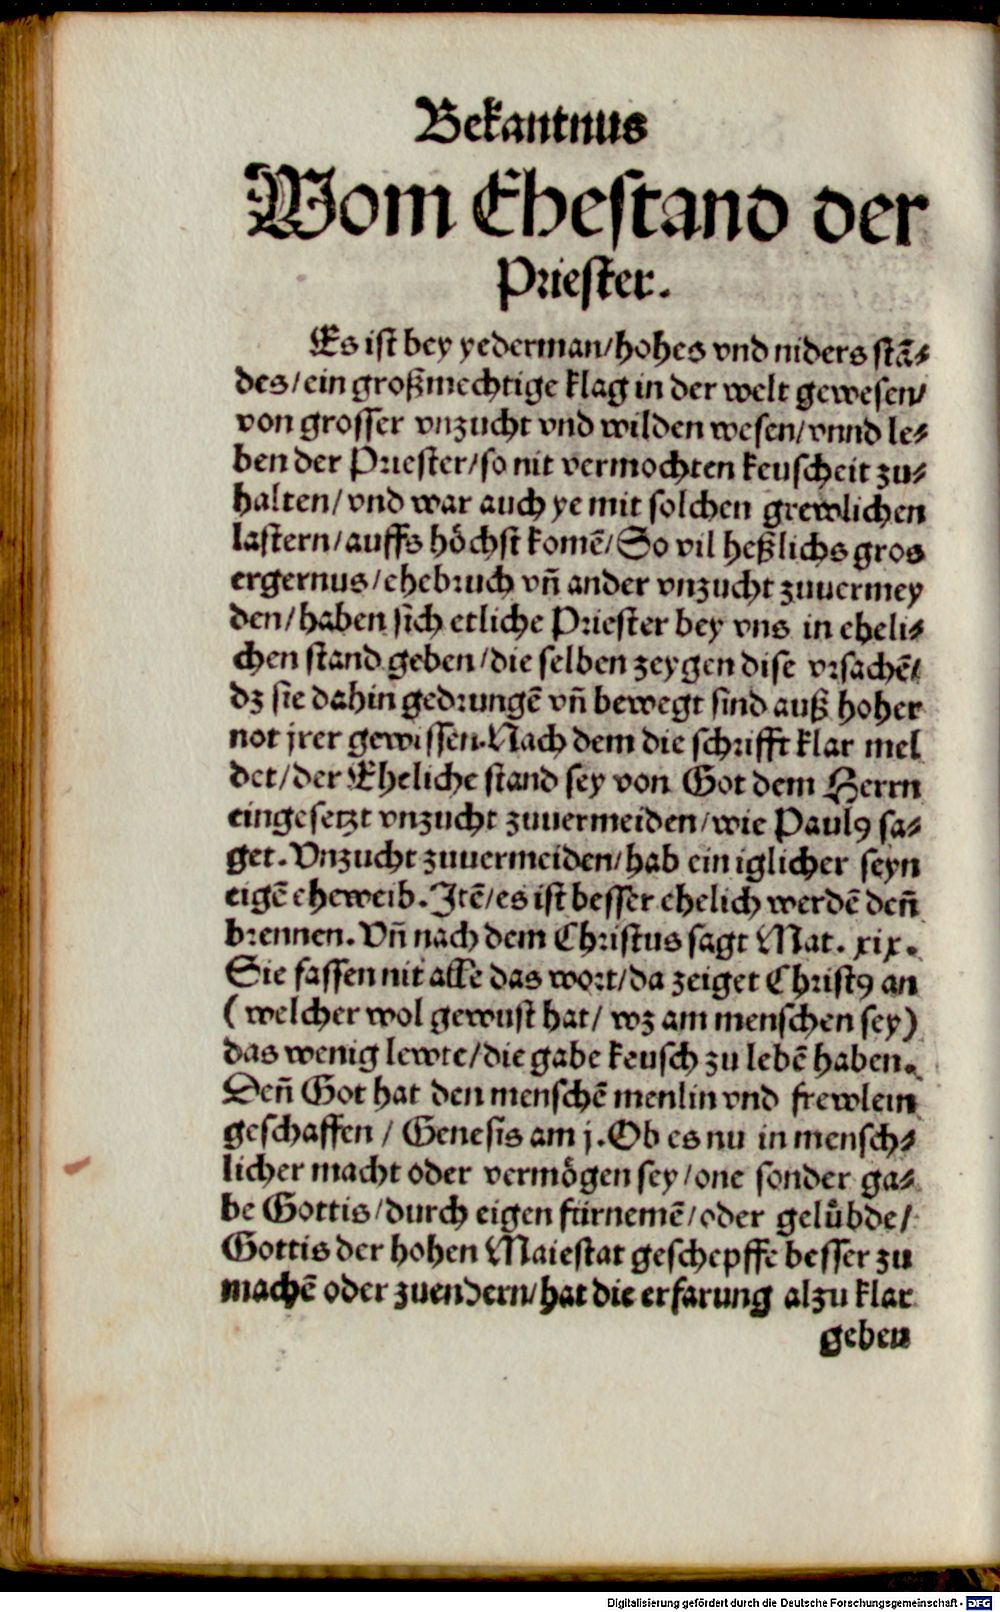 Bekantnus
Vom Ehestand der
Priester.
Es ist bey yederman/hohes vnd niders stā⸗
des/ein großmechtige klag in der welt gewesen/
von grosser vnzucht vnd wilden wesen/vnnd le⸗
ben der Priester/so nit vermochten keuscheit zu⸗
halten/vnd war auch ye mit solchen grewlichen
lastern/auffs höchst komē/So vil heßlichs gros
ergernus/ehebruch vñ ander vnzucht zuuermey
den/haben sich etliche Priester bey vns in eheli⸗
chen stand geben/die selben zeygen dise vrsachē/
dz sie dahin gedrungē vñ bewegt sind auß hoher
not jrer gewissen. Nach dem die schrifft klar mel
det/der Eheliche stand sey von Got dem Herrn
eingesetzt vnzucht zuuermeiden/wie Paulꝰ sa⸗
get. Vnzucht zuuermeiden/hab ein iglicher seyn
eigē eheweib. Itē/es ist besser ehelich werdē deñ
brennen. Vñ nach dem Christus sagt Mat. xix.
Sie fassen nit alle das wort/da zeiget Christꝰ an
(welcher wol gewust hat/ wz am menschen sey)
das wenig lewte/die gabe keusch zu lebē haben.
Deñ Got hat den menschē menlin vnd frewlein
geschaffen / Genesis am j. Ob es nu in mensch⸗
licher macht oder vermögen sey/one sonder ga⸗
be Gottis/durch eigen fürnemē/oder gelübde/
Gottis der hohen Maiestat geschepffe besser zu
machē oder zuendern/hat die erfarung alzu klar
geben
Digitalisierung gefördert durch die Deutsche Forschungsgemeinschaft - DFG